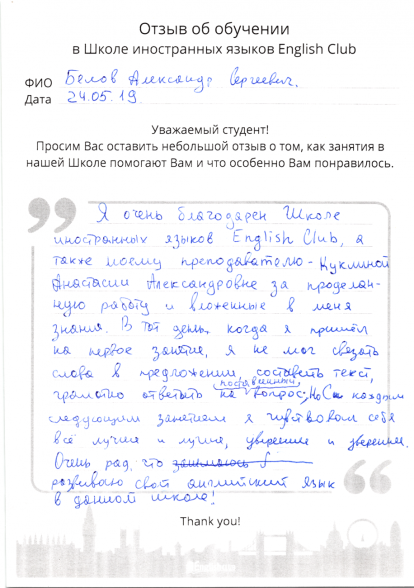 Отзыв об обучении
в Школе иностранных языков English Club
ФИО Белов Александр Сергеевич.
Дата 24.05.19
Уважаемый студент!
Просим Вас оставить небольшой отзыв о том, как занятия в
нашей Школе помогают Вам и что особенно Вам понравилось.
Я очень благодарен Школе
иностранных языков English Club, а
также моему преподавателю - Куклиной
Анастасии Александровне за проделан-
ную работу и вложенные в меня
знания. В тот день, когда я пришёл
на первое занятие, я не мог связать
слова в предложении, составить текст,
грамотно ответить на вопрос. Но с каждым
следующим занятием я чувствовал себя
всё лучше и лучше, увереннее и увереннее.
Очень рад, что занимаюсь и
развиваю свой английский язык
в данной школе!
Thank you!